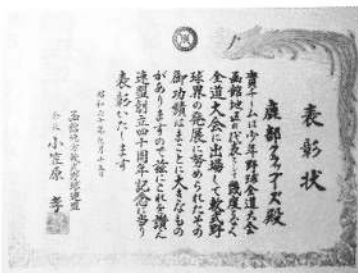 表彰状
鹿部クラブーズ殿
貴チームは少年野球全道大会
函館地区の代表として幾度となく
全道大会に出場して軟式野
球界の発展に努められたその
御功績はまことに大きなもの
がありますので茲にこれを讃え
連盟創立四十周年記念に当り
表彰いたします
昭和六十年九月十五日
函館地方軟式野球連盟
会長 小笠原 孝